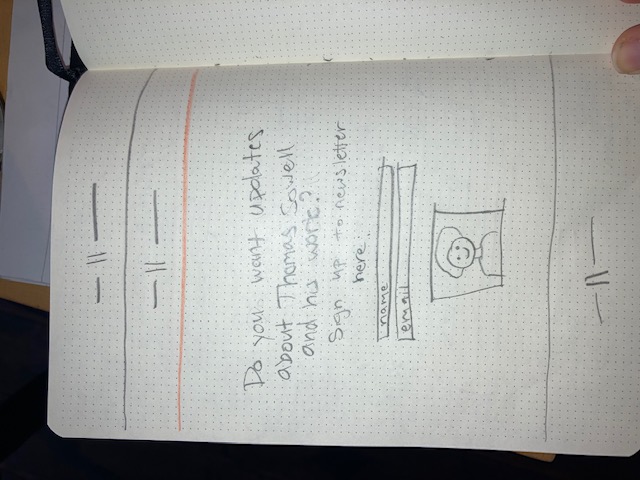 Do you want updates
about Thomas Sowell
and his work?
Sign up to newsletter
here:
name
email